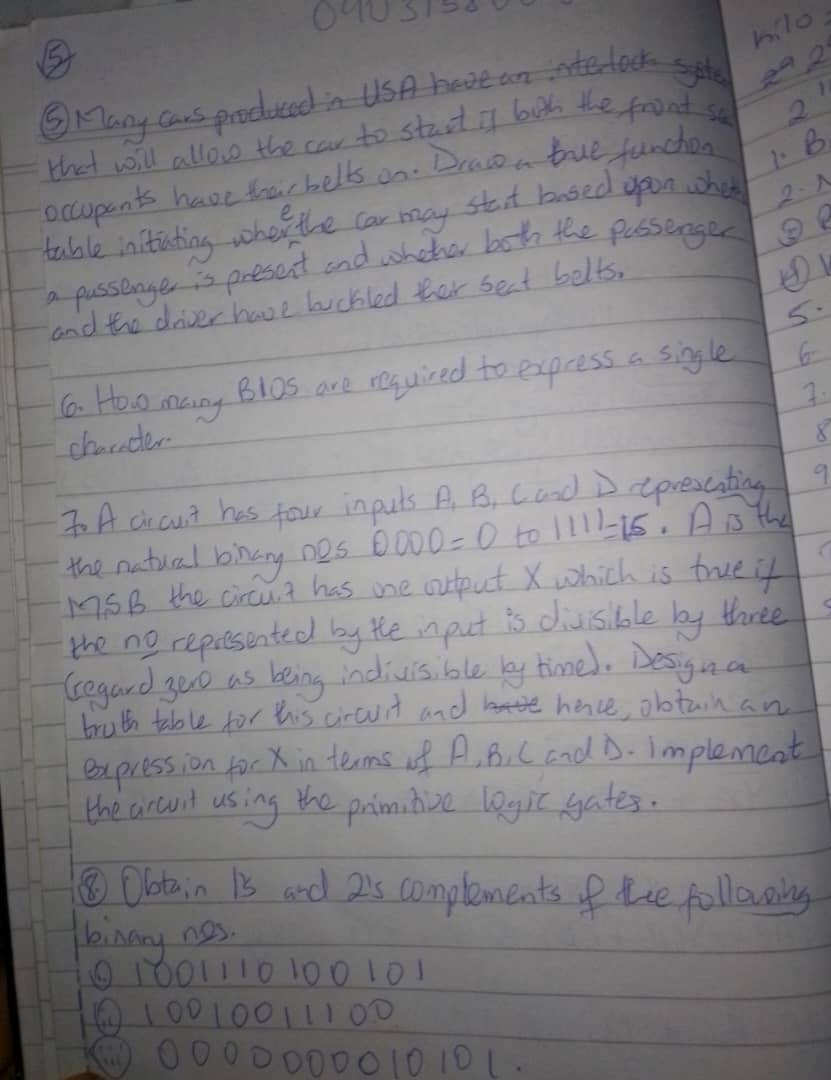 5
⑤ Many cars produced in USA have an interlock
that will allow the car to start if both the front
occupants have their belts on. Draw a true function
table initiating wheethe the car may start based upon
a passenger is present and whether both the passenger
and the driver have buckled their seat belts.
6. How many BIOS are required to express a single
character.
7. A circuit has four inputs A, B, C and D representing
the natural binary nos 0000=0 to 1111=15. A is the
MSB the circuit has one output X which is true if
the no represented by the input is divisible by three
(regard zero as being indivisible by time). Design a
truth table for this circuit and have hence, obtain an
expression for X in terms of A, B, C and D. Implement
the circuit using the primitive logic gates.
⑧ Obtain 1's and 2's complements of the following
binary nos.
(i) 1001110100101
(ii) 10010011100
(iii) 0000000010101.
2
1. B
2.
5.
6.
7.
8
9